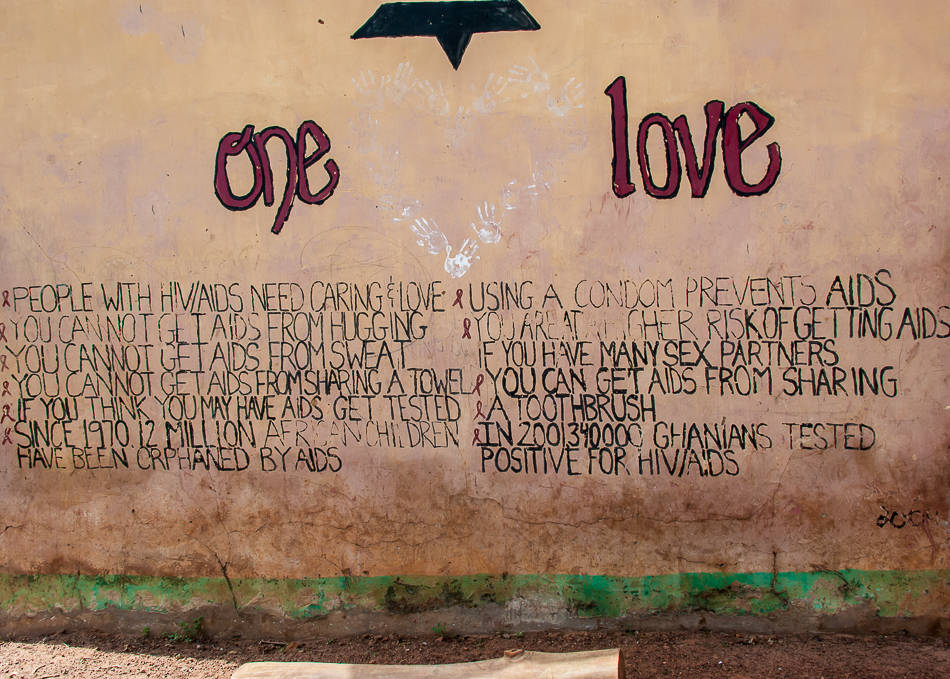 one love
PEOPLE WITH HIV/AIDS NEED CARING & LOVE
YOU CANNOT GET AIDS FROM HUGGING
YOU CANNOT GET AIDS FROM SWEAT
YOU CANNOT GET AIDS FROM SHARING A TOWEL
IF YOU THINK YOU MAY HAVE AIDS GET TESTED
SINCE 1970 12 MILLION AFRICAN CHILDREN
HAVE BEEN ORPHANED BY AIDS
USING A CONDOM PREVENTS AIDS
YOU ARE AT HIGHER RISK OF GETTING AIDS
IF YOU HAVE MANY SEX PARTNERS
YOU CAN GET AIDS FROM SHARING
A TOOTHBRUSH
IN 2001,340000 GHANIANS TESTED
POSITIVE FOR HIV/AIDS